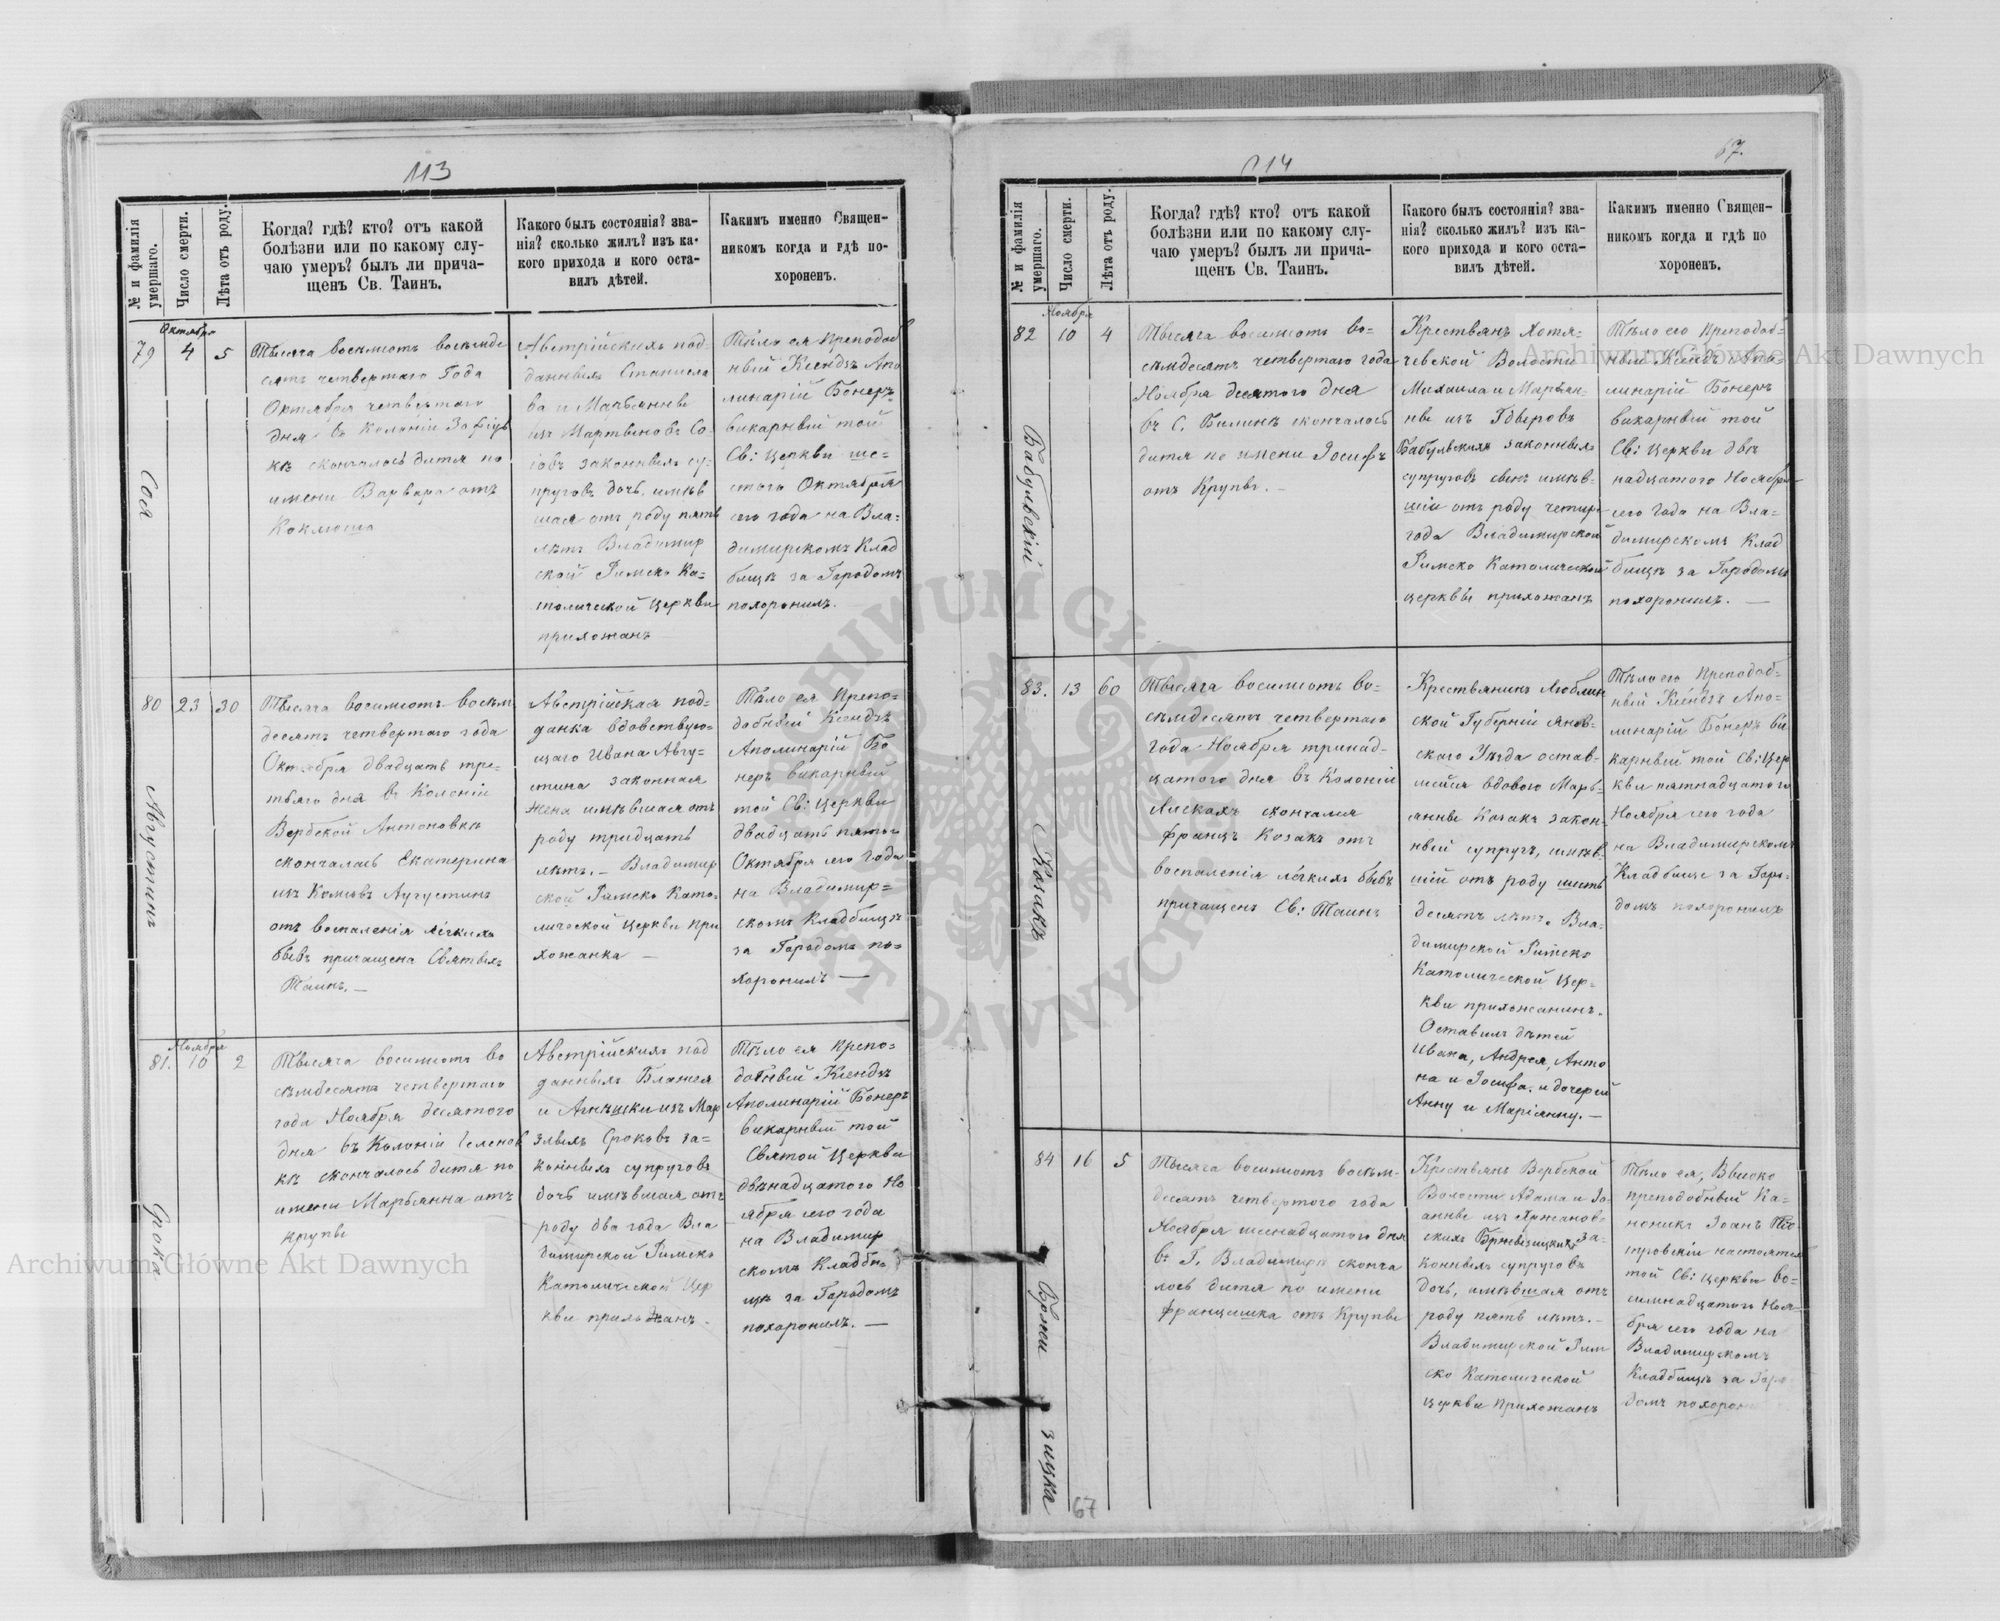 113
№ и фамилія умершаго.
Число смерти.
Лѣта отъ роду.
Когда? гдѣ? кто? отъ какой
болѣзни или по какому слу-
чаю умеръ? былъ ли прича-
щенъ Св. Таинъ.
Какого былъ состоянія? зва-
нія? сколько жилъ? изъ ка-
кого прихода и кого оста-
вилъ дѣтей.
Какимъ именно Священ-
никомъ когда и гдѣ по-
хороненъ.
Октября
79
4
5
Соя
Тысяча восемьсотъ восемьде
сятъ четвертаго Года
Октября четвертаго
дня въ Колоніи Зофіув
кѣ скончалось дитя по
имени Варвара отъ
Коклюша
Австрійскихъ под-
данныхъ Станисла
ва и Марьянны
изъ Мартыновъ Со-
іовъ законныхъ су-
пруговъ дочь, имѣв
шая отъ роду пять
лѣтъ Владимир
ской Римско Ка-
толической Церкви
прихожанъ
Тѣло ея Преподоб
ный Ксендзъ Апо
линарій Бонеръ
викарный той
Св: Церкви ше-
стого Октября
сего года на Вла-
димирскомъ Клад
бищѣ за Городомъ
похоронилъ. —
80
23
30
Августинъ
Тысяча восемсотъ восем
десятъ четвертаго года
Октября двадцать тре-
тьяго дня въ Колоніи
Вербской Антоновкѣ
скончалась Екатерина
изъ Аугустинъ
отъ воспаленія лёгкихъ
бывъ причащена Святыхъ
Таинъ. —
Австрійская под-
данка вдовствую-
щаго Ивана Авгу-
стина законная
жена имѣвшая отъ
роду тридцать
лѣтъ. — Владимир
ской Римско Като-
лической Церкви при
хожанка —
Тѣло ея Препо-
добный Ксендзъ
Аполинарій Бо
неръ викарный
той Св: Церкви
двадцать пятого
Октября сего Года
на Владимир-
скомъ Кладбищѣ
за Городомъ по-
хоронилъ —
Ноября
81.
10
2
Срока
Тысяча восемсотъ во
семьдесятъ четвертаго
года Ноября десятого
дня въ Колоніи Геленов
кѣ скончалось дитя по
имени Марьянна отъ
крупы
Австрійскихъ под
данныхъ Блажея
и Агнѣшки изъ Мар
Сроковъ за-
конныхъ супруговъ
дочь имѣвшая отъ
роду два года Вла
димирской Римско
Католической Цер
кви прихожанъ.
Тѣло ея Препо-
добный Ксендзъ
Аполинарій Бонеръ
викарный той
Святой Церкви
двѣнадцатого Но
ября сего года
на Владимир
скомъ Кладби-
щѣ за Городомъ
похоронилъ. —
114
67.
№ и фамилія умершаго.
Число смерти.
Лѣта отъ роду.
Когда? гдѣ? кто? отъ какой
болѣзни или по какому слу-
чаю умеръ? былъ ли прича-
щенъ Св. Таинъ.
Какого былъ состоянія? зва-
нія? сколько жилъ? изъ ка-
кого прихода и кого оста-
вилъ дѣтей.
Какимъ именно Священ-
никомъ когда и гдѣ по
хороненъ.
Ноября
82
10
4
Бабульскій
Тысяча восемсотъ во-
семдесятъ четвертаго года
Ноября десятого дня
въ С. Билинѣ скончалось
дитя по имени Іосифъ
отъ Крупы. —
Крестьянъ Хотя-
чевской Волости
Михаила и Марьян-
ны изъ
Бабульскихъ законныхъ
супруговъ сынъ имѣв-
шій отъ роду четыре
года Владимирской
Римско Католической
церквы прихожанъ
Тѣло его Преподоб-
ный Ксендзъ Апо
линарій Бонеръ
викарный той
Св: Церкви две
надцатого Ноября
сего года на Вла-
димирскомъ Клад
бищѣ за Городомъ
похоронилъ. —
83.
13
60
Козакъ
Тысяча восемсотъ во-
семдесятъ четвертаго
года Ноября тринад-
цатого дня въ Колоніи
Пяскахъ скончался
францъ Козакъ отъ
воспаленія лёгкихъ бывъ
причащенъ Св: Таинъ
Крестьянинъ Люблин
ской Губерніи Янов-
скаго Уѣзда остав-
шейся вдовою Марь-
янны Козакъ закон-
ный супругъ, имѣв-
шій отъ роду шесть
десятъ лѣтъ. Вла-
димирской Римско
Католической Цер-
кви прихожанинъ.
Оставилъ дѣтей
Ивана, Андрея, Анто
на и Іосифа. и дочерей
Анну и Маріянну. —
Тѣло его Преподоб-
ный Ксендзъ Апо-
линарій Бонеръ ви
карный той Св: Цер
кви пятнадцатого
Ноября сего года
на Владимирскомъ
Кладбище за Горо-
домъ похоронилъ
84
16
5
Бржезицка
Тысяча восемсотъ восем-
десятъ четвертого года
Ноября шеснадцатого дня
въ Г. Владимирѣ сконча
лось дитя по имени
францишка отъ Крупы
Крестьянъ Вербской
Волости Адама и Іо-
анны изъ Яржанов-
скихъ Бржезицкихъ за-
конныхъ супруговъ
дочь, имѣвшая отъ
роду пять лѣтъ. —
Владимирской Рим
ско Католической
церкви прихожанъ
Тѣло ея, Высоко
преподобный Ка-
ноникъ Іоанъ
настоятель
той Св: Церкви во-
семнадцатого Ноя-
бря сего года на
Владимирскомъ
Кладбищѣ за Горо
домъ похорони
67
Archiwum Główne Akt Dawnych
Archiwum Główne Akt Dawnych
ARCHIWUM GŁÓWNE AKT DAWNYCH